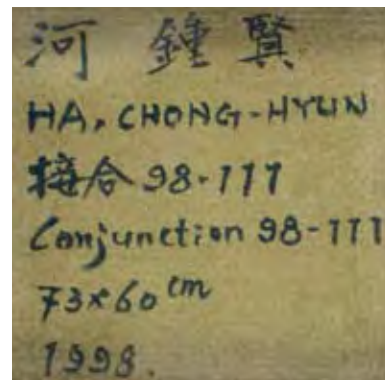 河 鍾 賢
HA, CHONG-HYUN
接合 98-111
Conjunction 98-111
73×60 cm
1998.